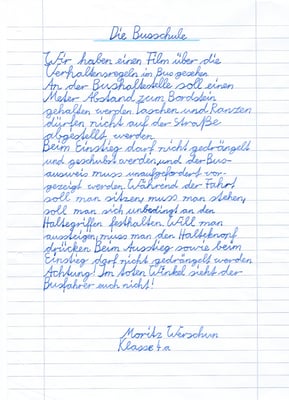 Die Busschule
Wir haben einen Film über die
Verhaltensregeln in Bus gesehen.
An der Bushaltestelle soll einen
Meter Abstand zum Bordstein
gehalten werden. Taschen und Ranzen
dürfen nicht auf der Straße
abgestellt werden.
Beim Einstieg darf nicht gedrängelt
und geschubst werden, und der Bus-
ausweis muss unaufgefordert vor-
gezeigt werden. Während der Fahrt
soll man sitzen, muss man stehen,
soll man sich unbedingt an den
Haltegriffen festhalten. Will man
aussteigen, muss man den Halteknopf
drücken. Beim Ausstieg sowie beim
Einstieg darf nicht gedrängelt werden
Achtung! Im toten Winkel sieht der
Busfahrer euch nicht!
Moritz Werschun
Klasse 4a